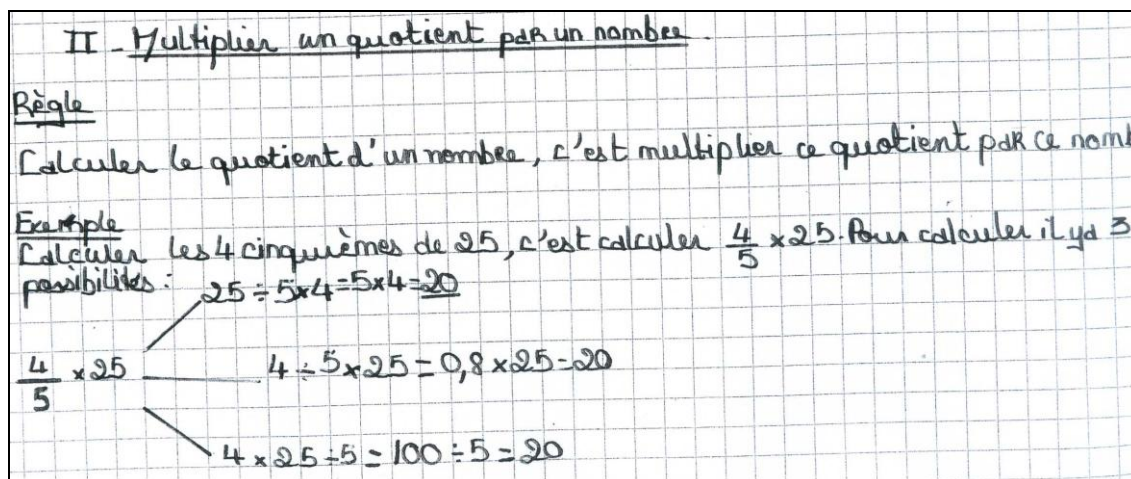 II - Multiplier un quotient par un nombre.
Règle
Calculer le quotient d'un nombre, c'est multiplier ce quotient par ce nomb
Exemple
Calculer les 4 cinquièmes de 25, c'est calculer 4/5 × 25. Pour calculer il y a 3
possibilités :
25 ÷ 5 × 4 = 5 × 4 = 20
4/5 × 25
4 ÷ 5 × 25 = 0,8 × 25 = 20
4 × 25 ÷ 5 = 100 ÷ 5 = 20